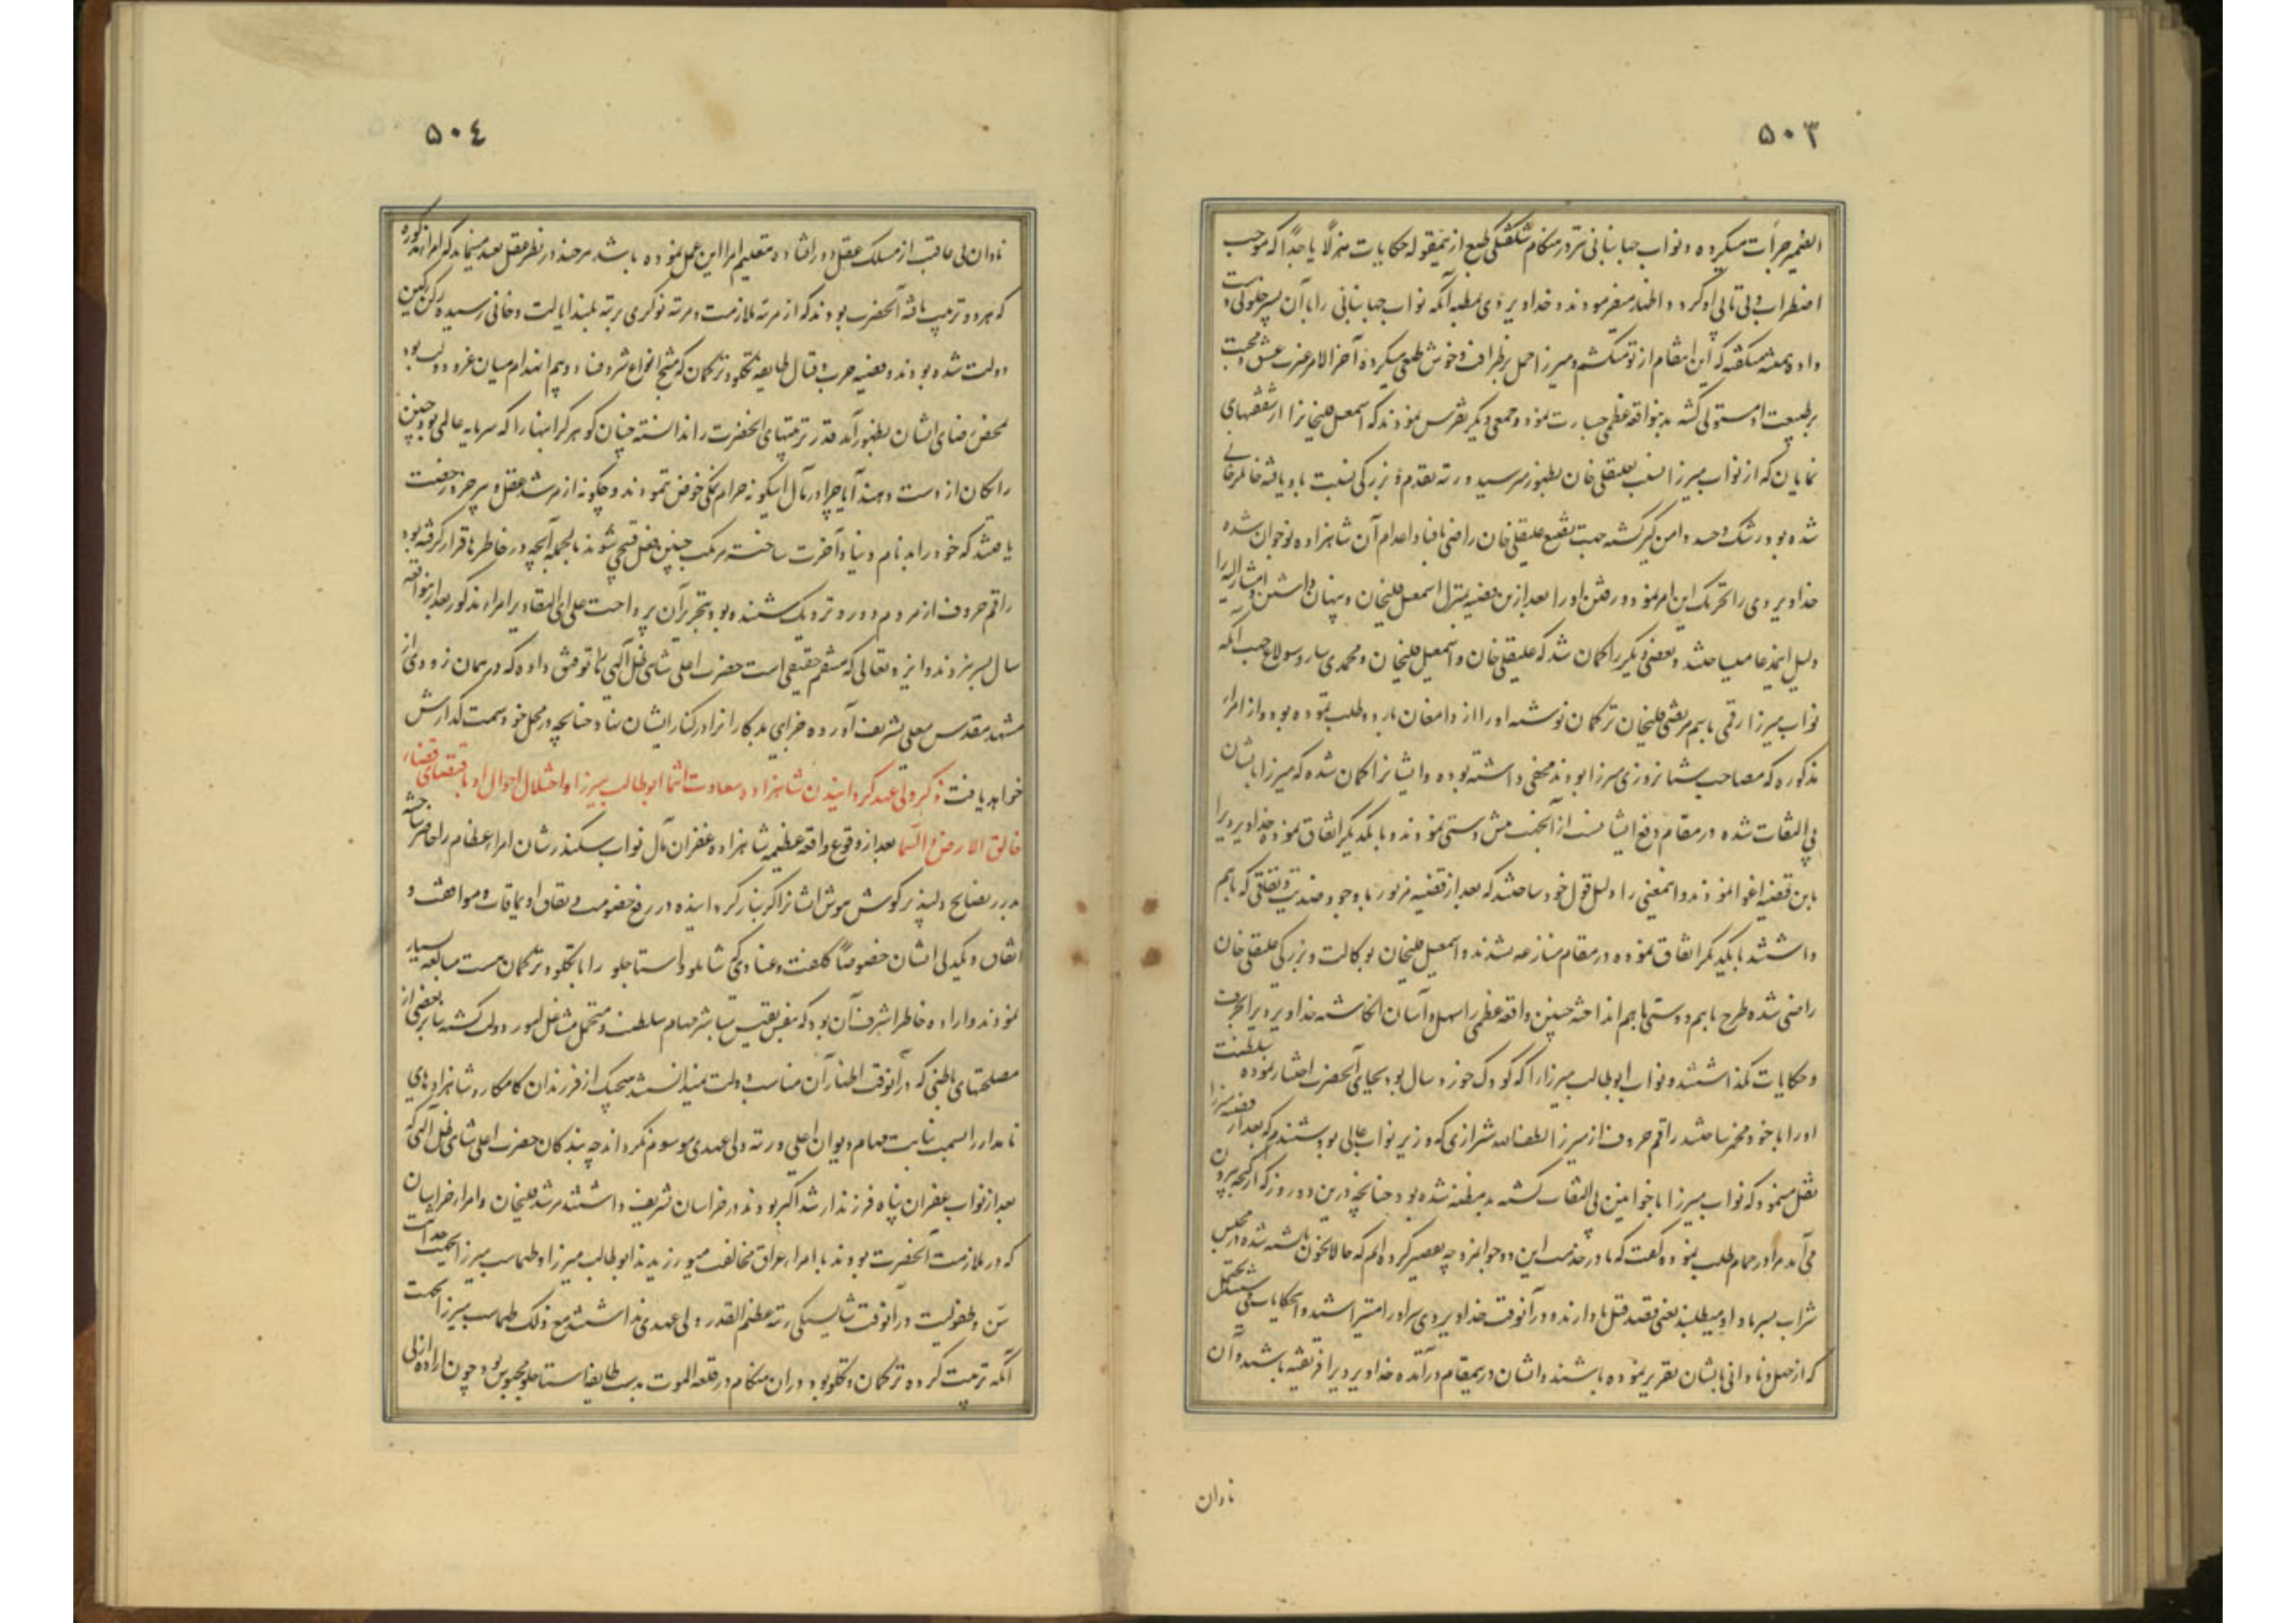 ۵۰۳
الضمیر جرأت میکرده و نواب جهانبانی نیز در هنگام شکفتگی طبع از نمقوله حکایات هزلاً یا جداً که موجب
اضطراب و بی تابی او گردد اظهار میفرمودند و خداویردی بمظنه آنکه نواب جهانبانی را با آن پسر جلوئی هست
داده همیشه میگفته که این انتقام از تو میکشم و میرزا حمل بر ظرافت و خوش طبعی میکرده آخر الامر غیرت عشق و محبت
بر طبیعت او مستولی گشته بدینواقعه عظمی جسارت نمود و جمعی دیگر تفرس نمودند که اسمعیل قلیخانرا از شفقتهای
نمایان که از نواب میرزا نسبت بعلیقلی خان بظهور میرسید و رتبه تقدم و بزرگی نسبت باو یافته خاطر
شده بود رشک و حسد دامن گیر گشته جهت تضییع علیقلی خان راضی بافنا و اعدام آن شاهزاده نوجوان شده
خداویردی را تحریک این امر نمود و رفتن او را بعد از این قضیه بمنزل اسمعیل قلیخان و پنهان داشتن مشارالیه را
دلیل اینمدعا میساختند و بعضی دیگر را گمان شد که علیقلی خان و اسمعیل قلیخان و محمدی ساروسولاغ جهت آنکه
نواب میرزا رقمی باسم مرتضی قلیخان ترکمان نوشته او را از دامغان باردو طلب نموده بود و از امراء
مذکوره که مصاحب شبانروزی میرزا بودند مخفی داشته بوده و ایشانرا گمان شده که میرزا بایشان
بی التفات شده در مقام دفع ایشانست از آنجهت پیش دستی نمودند و با یکدیگر اتفاق نموده خداویردیرا
باین قضیه اغوا نمودند و اینمعنی را دلیل قول خود ساختند که بعد از قضیه مزبور با وجود ضدیت و نفاقی که باهم
داشتند با یکدیگر اتفاق نموده در مقام منازعه نشدند و اسمعیل قلیخان بوکالت و بزرگی علیقلی خان
راضی شده طرح باهم دوستی باهم انداخته چنین واقعه عظمی را سهل و آسان انگاشته خداویردیرا بحرف
و حکایات نگذاشتند و نواب ابوطالب میرزا را که کودک خورد سال بود بجای آنحضرت اختیار نموده بسلطنت
او را با خود مخمر ساختند راقم حروف از میرزا لطف الله شیرازی که وزیر نواب عالی بود شنیدم که بعد از قضیه میرزا
نقل مینمود که نواب میرزا با خوانین بی التفات گشته بد مظنه شده بود چنانچه درین دو روز که از گنجه بیرون
می آمد مرا در حمام طلب نموده گفت که ما در خدمت این دو جوانمرد چه تقصیر کرده ایم که حالا بخون ما تشنه شده در مجلس
شراب بسر ما داو میطلبند یعنی قصد قتل ما دارند و در آنوقت خداویردی سر او را میتراشید و اینحکایات می شنید یحتمل
که از جهل و نادانی بایشان تقریر نموده باشند و ایشان در بیمقام درآمده خداویردیرا فریفته باشند و آن
نادان
۵۰۴
نادان بی عاقبت از مسلک عقل دور افتاده بتعلیم امرا این عمل نموده باشد هر چند در نظر عقل بعید مینماید که امراء مذکوره
که هر دو تربیت یافته آنحضرت بودند که از مرتبه ملازمت و مرتبه نوکری برتبه بلند ایالت و خانی رسیده رکن رکین
دولت شده بودند و قضیه حرب و قتال طایفه تکلو و ترکمان که منتج انواع شر و فساد و بیم انهدام میان عز و دولت بود
محض رضای ایشان بظهور آمد قدر تربیتهای آنحضرت را ندانسته چنان گوهر گرانبها را که سرمایه عالمی بود چنین
رایگان از دست دهند آیا چرا در مآل اینگونه حرام نمکی خوض ننمودند و چگونه از مرشد عقل و پیر خرد رخصت
یافتند که خود را بدنام دنیا و آخرت ساخته مرتکب چنین فعل قبیحی شوند بالجمله آنچه در خاطرها قرار گرفته بود
راقم حروف از مردم دور و نزدیک شنیده بود بتحریر آن پرداخت علی ای التقادیر امراء مذکور بعد از اینواقعه
سال بسر نبردند و ایزد تعالی که منتقم حقیقی است حضرت اعلی شاهی ظل اللهی را توفیق داده که در همان زودی از
مشهد مقدس معلی تشریف آورده جزای بد کارانرا در کنار ایشان نهاد چنانچه در محل خود سمت گذارش
خواهد یافت ذکر ولی عهد گردانیدن شاهزاده سعادت انتما ابوطالب میرزا و اختلال احوال او باقتضای قضاء
خالق الارض و السما بعد از وقوع واقعه عظیمه شاهزاده غفران مآل نواب سکندر شان امراء عظام را حاضر ساخته
بدرر نصایح دلپذیر گوش هوش ایشانرا گرانبار گردانیده در رفع خصومت و نفاق اویماقات و موافقت و
اتفاق و یکدلی ایشان خصوصاً کلفت و عنادی که شاملو و استاجلو را با تکلو و ترکمان هست مبالغه بسیار
نمودند و اراده خاطر اشرف آن بود که بنفس نفیس مباشر مهام سلطنت و متحمل مشاغل امور دولت گشته بنا بر بعضی از
مصلحتهای باطنی که در آنوقت اظهار آن مناسب دولت نمیدانستند هیچیک از فرزندان کامکار و شاهزادهای
نامدار را بسمت نیابت مهام دیوان اعلی و رتبه ولی عهدی موسوم نگرداند چه بندگان حضرت اعلی شاهی ظل اللهی که
بعد از نواب غفران پناه فرزند ارشد اکبر بودند در خراسان تشریف داشتند مرشد قلیخان و امراء خراسان
که در ملازمت آنحضرت بودند با امراء عراق مخالفت میورزیدند ابوطالب میرزا و طهماسب میرزا بجهت حداثت
سن و طفولیت در آنوقت شایستگی رتبه عظیم القدر ولی عهدی نداشتند مع ذلک طهماسب میرزا بجهت
آنکه تربیت کرده ترکمان و تکلو بود در ان هنگام در قلعه الموت بدست طایفه استاجلو محبوس بود چون اراده ازلی